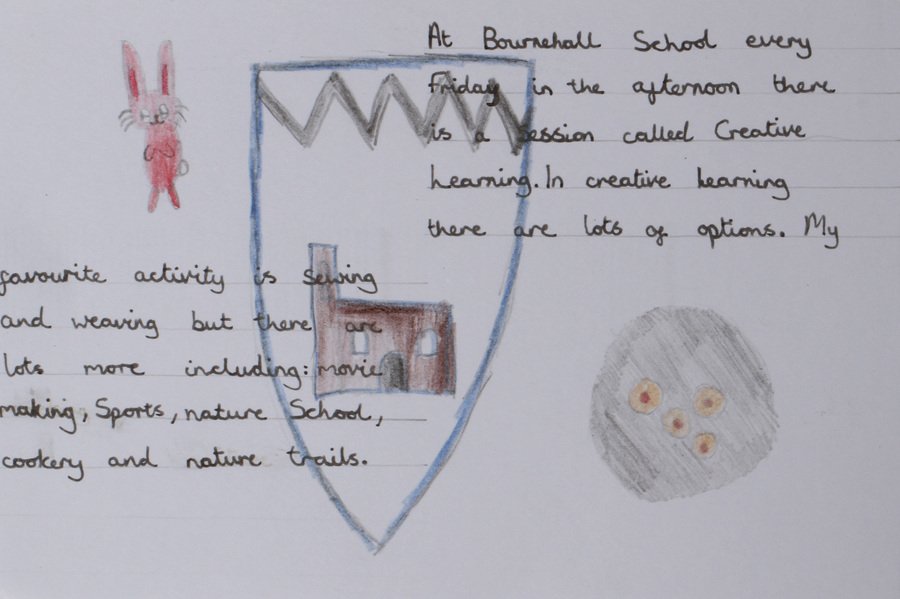 At Bournehall School every
Friday in the afternoon there
is a session called Creative
Learning. In creative learning
there are lots of options. My
favourite activity is sewing
and weaving but there are
lots more including: movie
making, Sports, nature School,
cookery and nature trails.